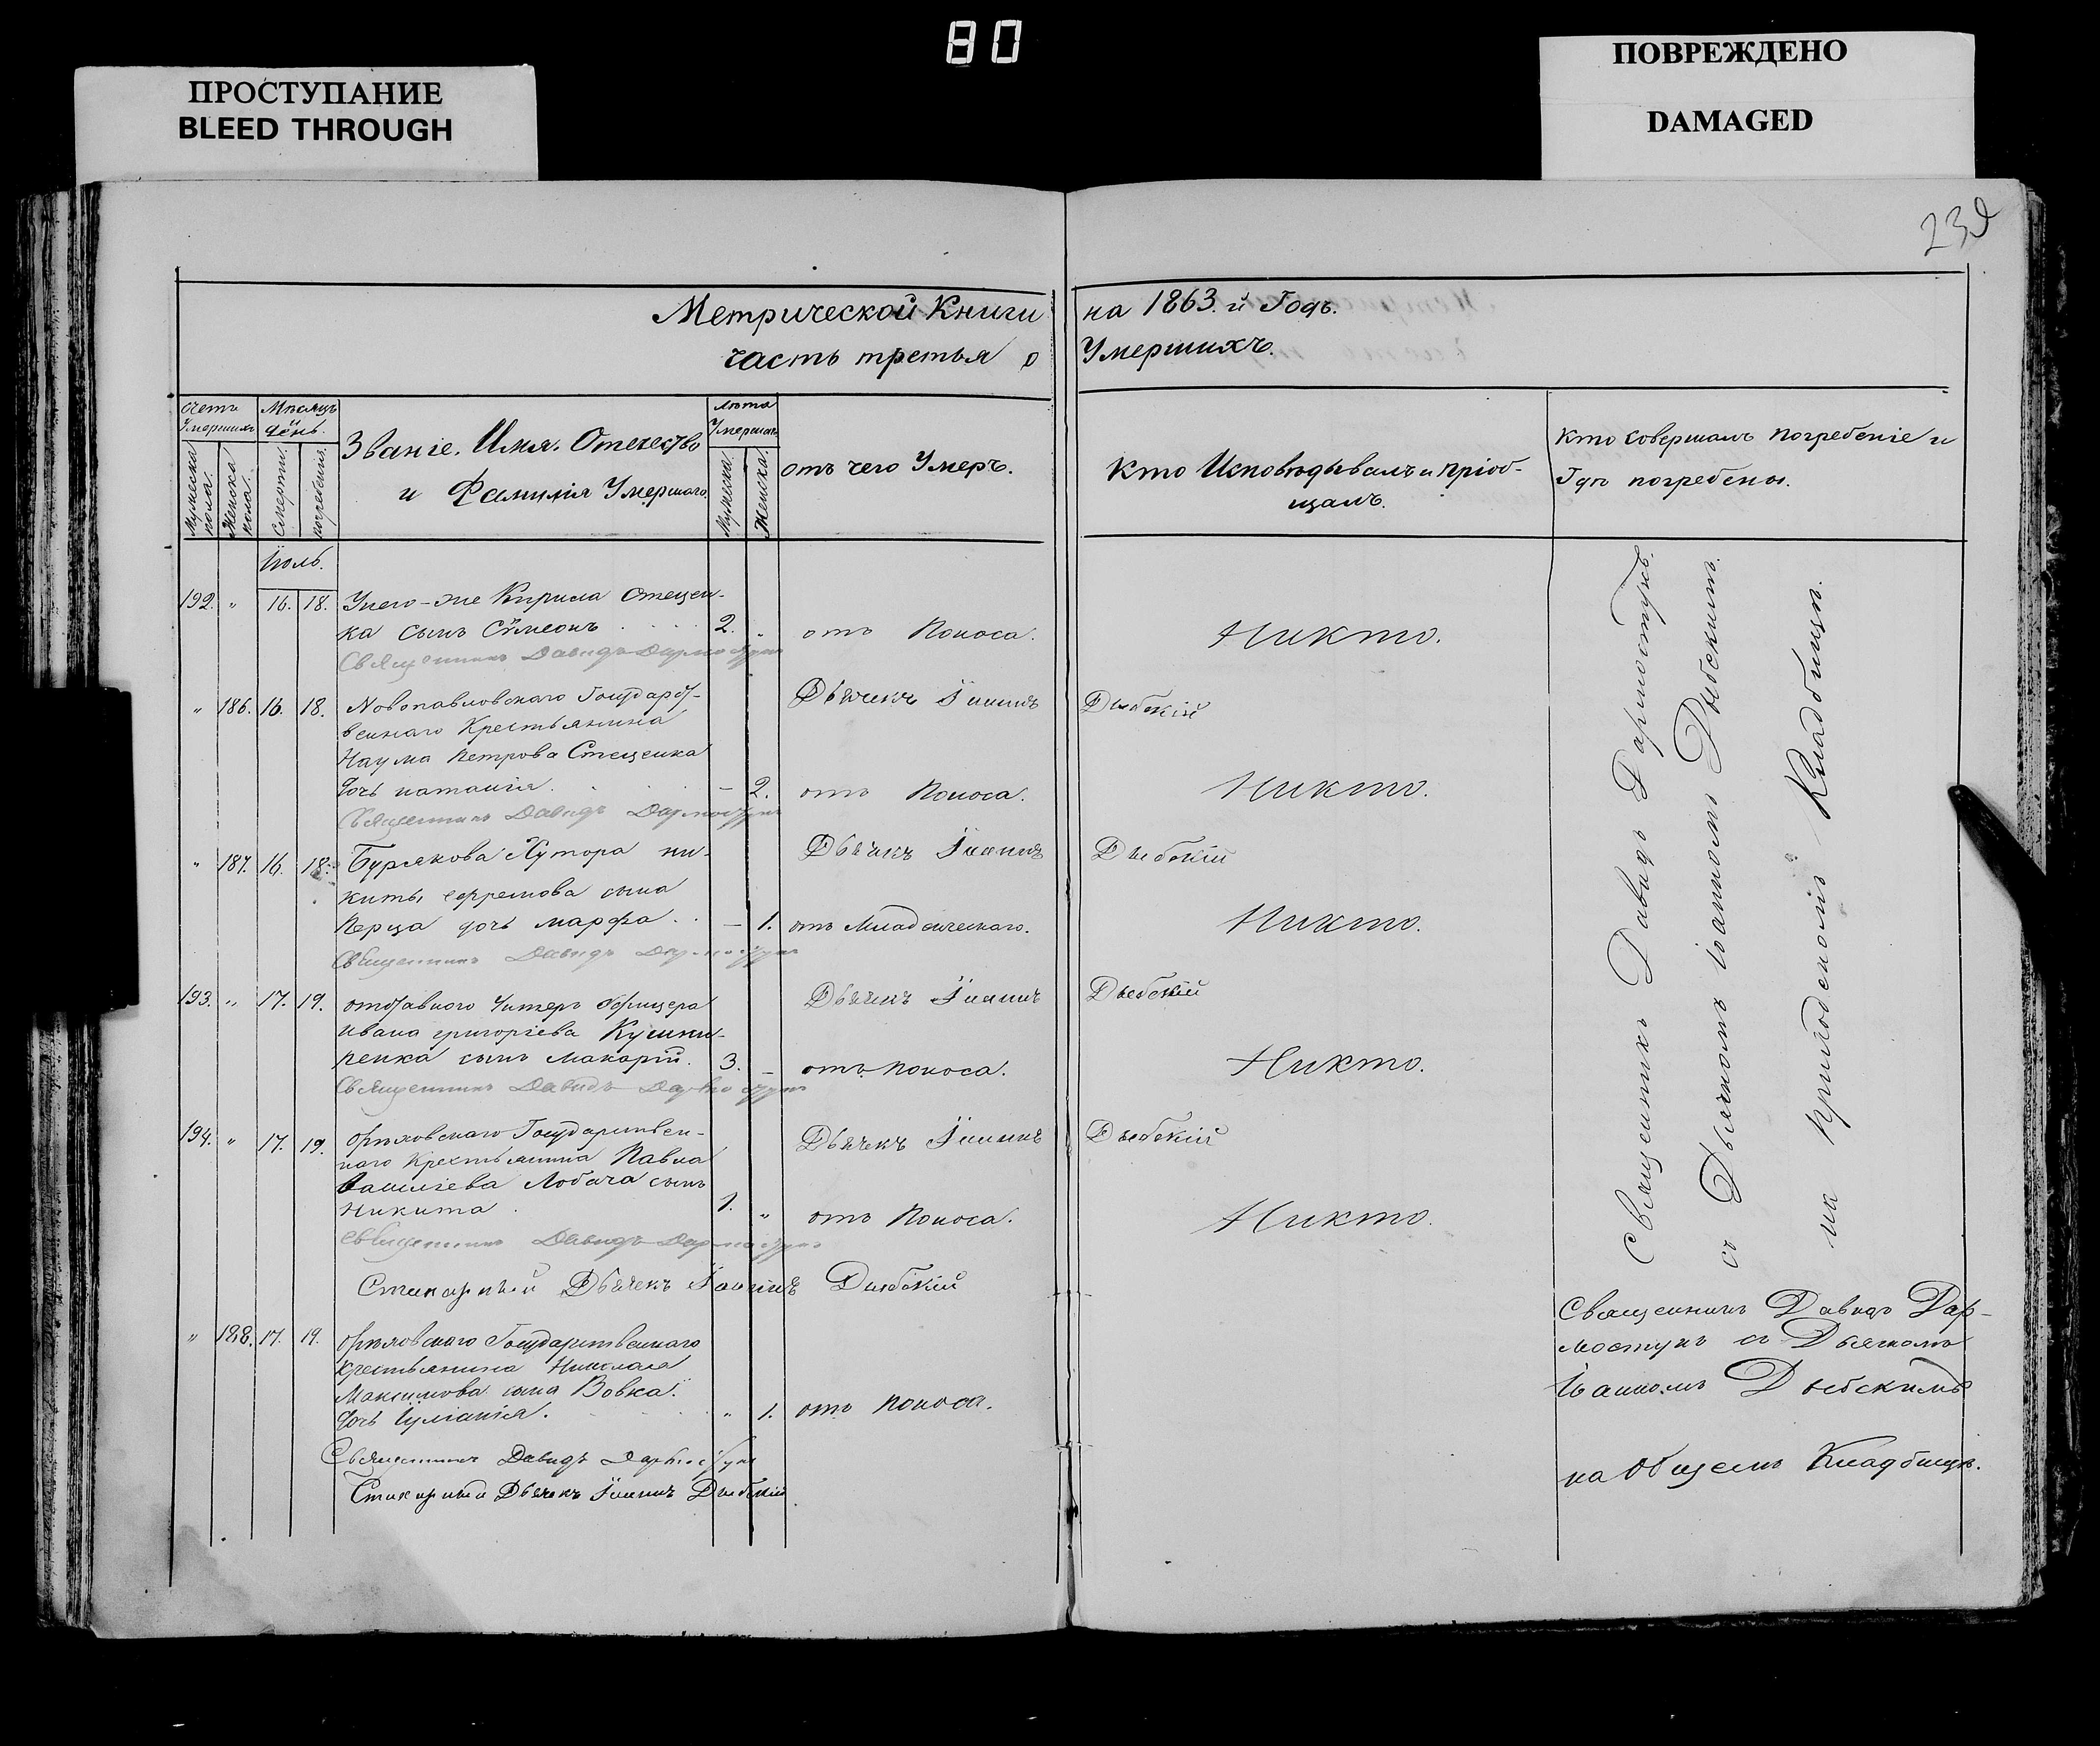 80
ПРОСТУПАНИЕ
BLEED THROUGH
ПОВРЕЖДЕНО
DAMAGED
239
Метрической Книги на 1863.й Годъ.
часть третья о Умершихъ.
счетъ Умершихъ
Мужеска пола.
Женска пола.
Мѣсяцъ и день.
Смерти.
погребенія.
Званіе. Имя. Отечество
и Фамилія Умершаго
лѣта Умершаго
Мужеска
Женска.
отъ чего Умеръ.
Кто Исповѣдывалъ и пріоб-
щалъ.
Кто совершалъ погребеніе и
Гдѣ погребены.
Іюль.
192. " 16. 18. Унего-же Кирила Стецен-
ка сынъ Сѵмеонъ 2. " отъ Поноса. Никто.
Священникъ Давидъ Дармостукъ
" 186. 16. 18. Новопавловскаго Государст-
веннаго Крестьянина
Наума Петрова Стеценка
дочь наталія. – 2. отъ Поноса. Никто.
Дьячекъ Іоаннъ Дыбскій
Священникъ Давидъ Дармостукъ
" 187. 16. 18. Бурякова Хутора ни-
киты ефремова сына
Перца дочь марфа – 1. отъ Младенческаго. Никто.
Дьячекъ Іоаннъ Дыбскій
Священникъ Давидъ Дармостукъ
193. " 17. 19. отставного Унтеръ Офицера
ивана григоріева Кушни-
ренка сынъ макарій. 3. – отъ поноса. Никто.
Дьячекъ Іоаннъ Дыбскій
Священникъ Давидъ Дармостукъ
194. " 17. 19. Орѣховскаго Государствен-
наго Крестьянина Павла
Василіева Лобача сынъ
никита 1. " отъ Поноса. Никто.
Дьячекъ Іоаннъ Дыбскій
Священникъ Давидъ Дармостукъ
Стихарный Дьячекъ Іоаннъ Дыбскій
" 188. 17. 19. Орѣховскаго Государственнаго
крестьянина Николая
Максимова сына Вовка.
дочь Іуліанія. " 1. отъ поноса.
Священникъ Давидъ Дармостукъ
Стихарный Дьячекъ Іоаннъ Дыбскій
Священникъ Давидъ Дармостукъ.
съ Дьячкомъ Іоанномъ Дыбскимъ.
на приходскомъ Кладбищѣ.
Священникъ Давидъ Дар-
мостукъ съ Дьячкомъ
Іоанномъ Дыбскимъ
на Общемъ Кладбищѣ.